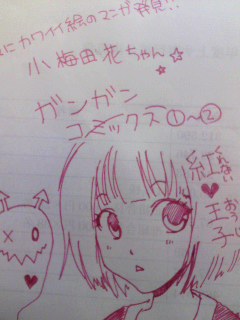 にカワイイ絵のマンガ発見!!
小梅田花ちゃん☆
ガンガン
コミックス①〜②
紅♥王子